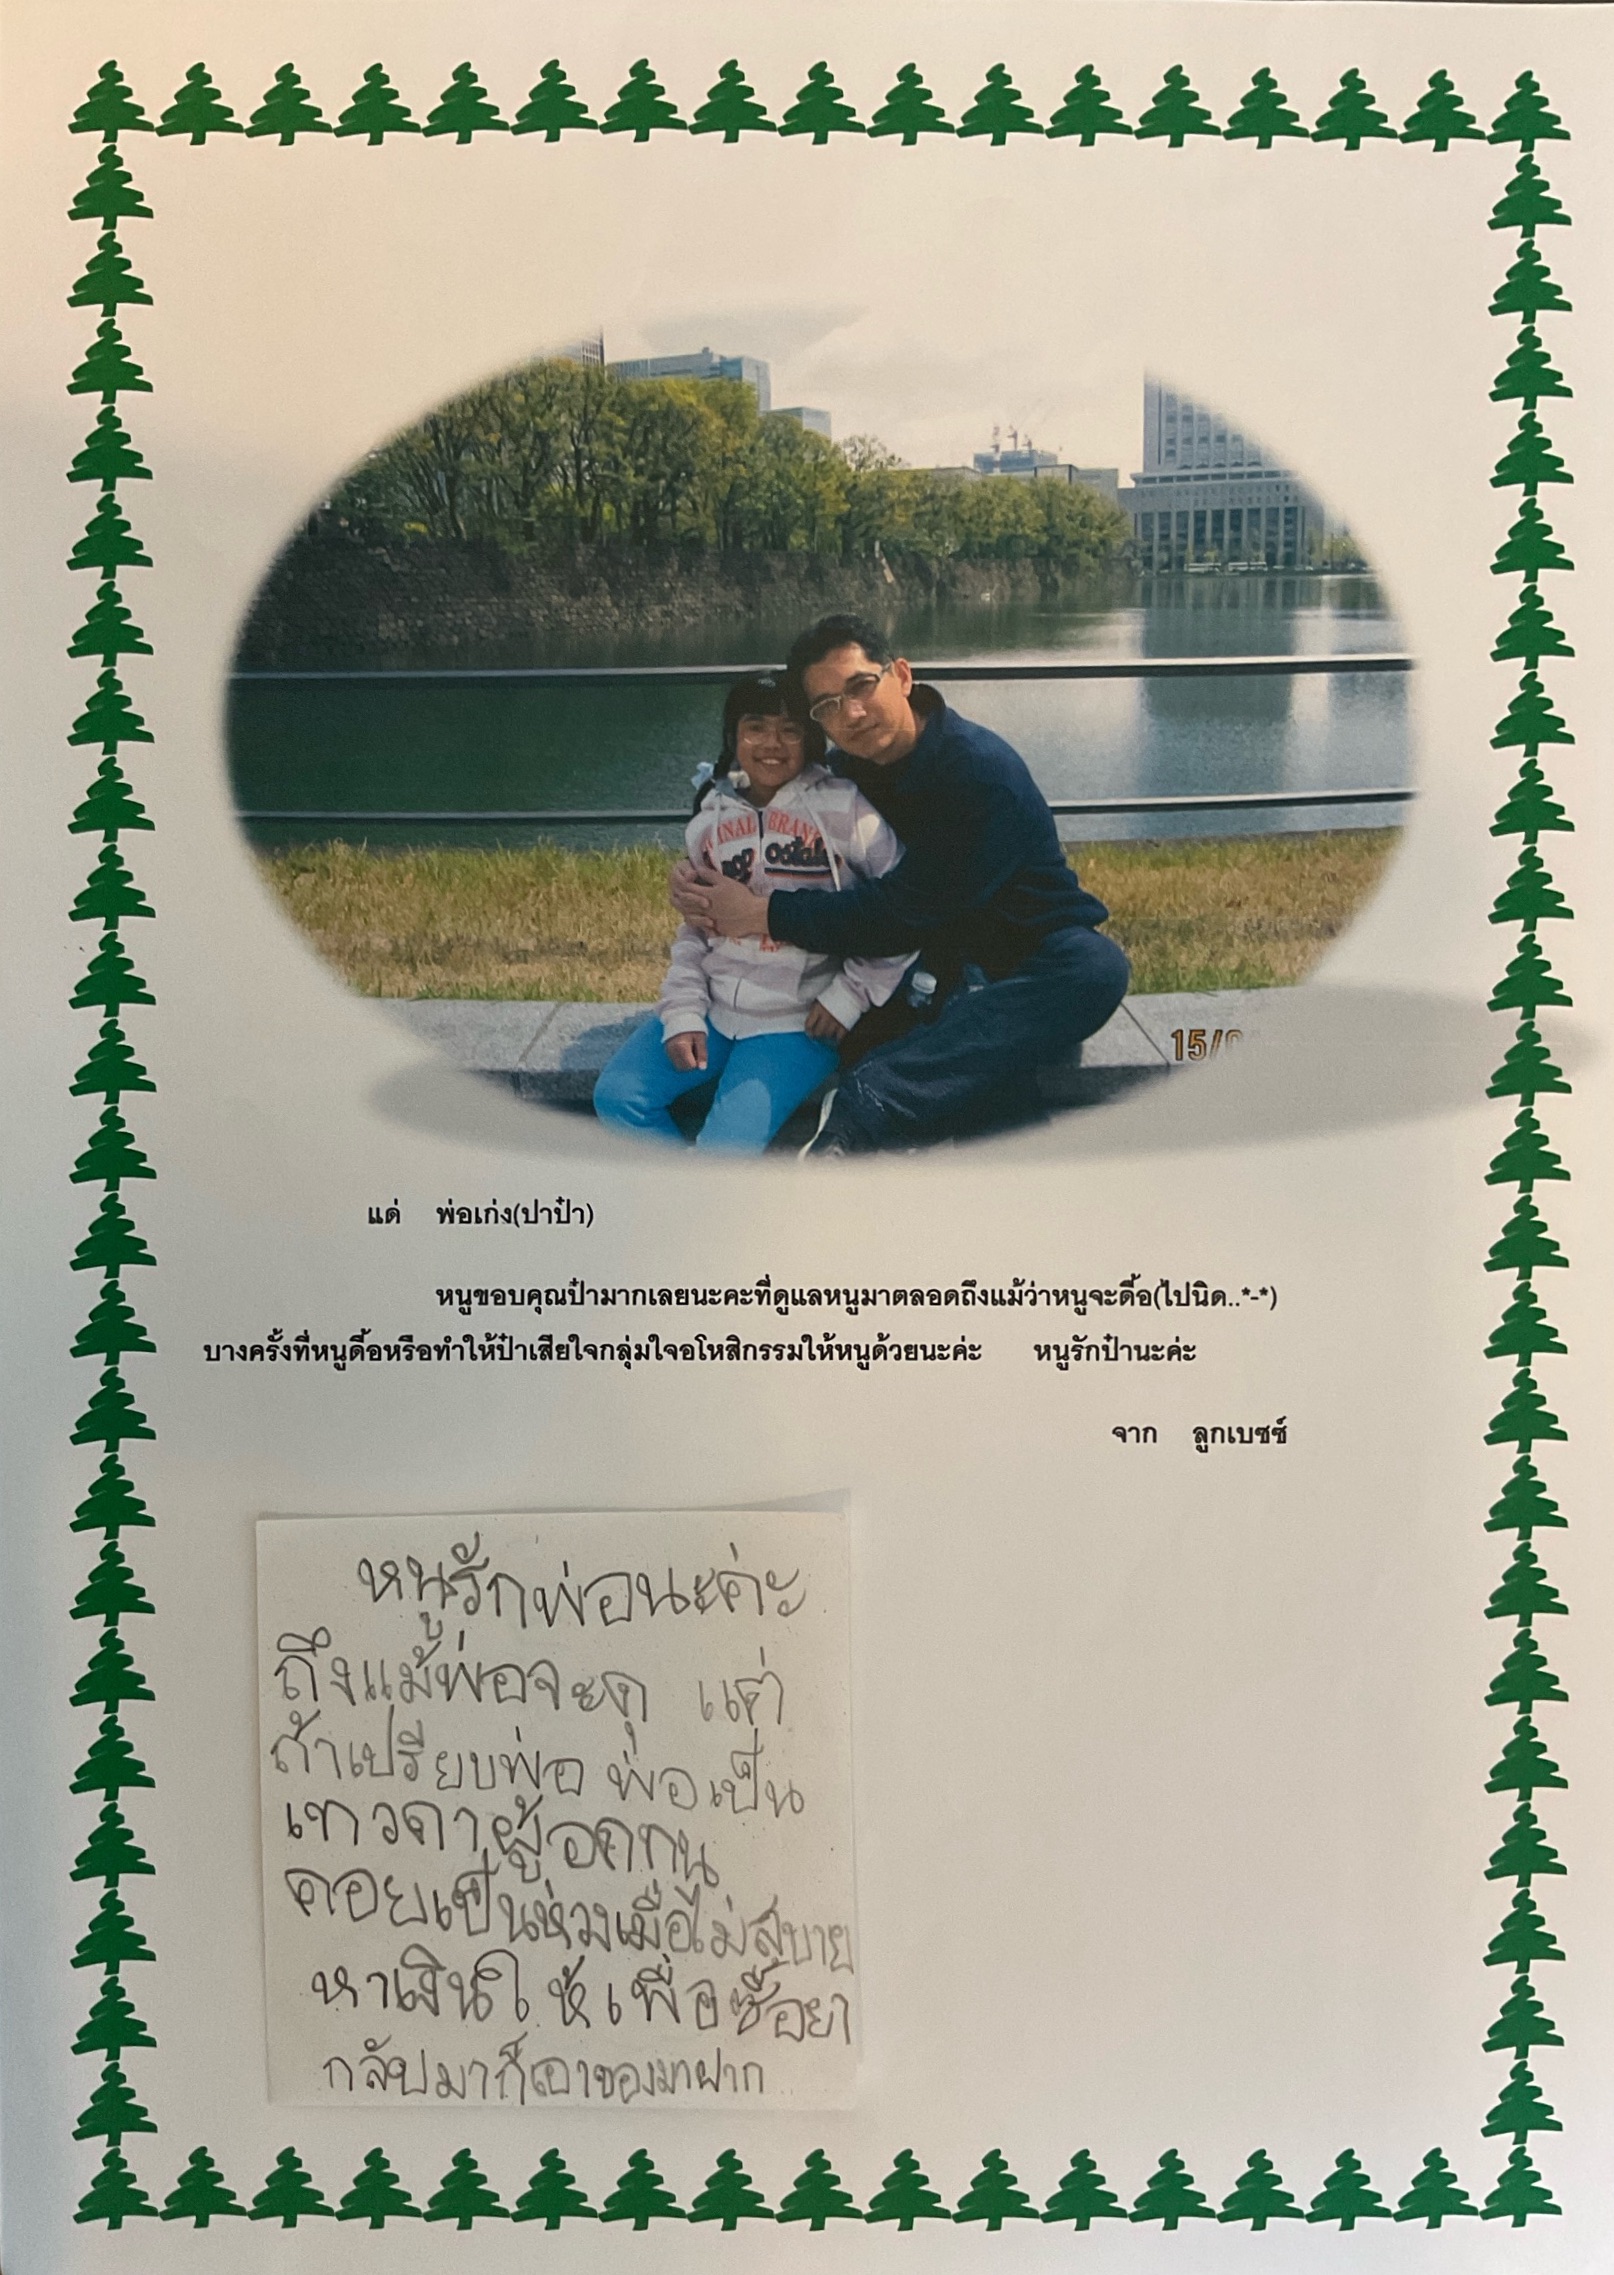 15/0
แด่ พ่อเก่ง(ปาป๋า)
หนูขอบคุณป๋ามากเลยนะคะที่ดูแลหนูมาตลอดถึงแม้ว่าหนูจะดื้อ(ไปนิด..*-*)
บางครั้งที่หนูดื้อหรือทำให้ป๋าเสียใจกลุ่มใจอโหสิกรรมให้หนูด้วยนะค่ะ หนูรักป๋านะค่ะ
จาก ลูกเบซซ์
หนูรักพ่อนะค่ะ
ถึงแม้พ่อจะดุ แต่
ถ้าเปรียบพ่อ พ่อเป็น
เทวดาผู้อดทน
คอยเป็นห่วงเมื่อไม่สบาย
หาเงินให้เพื่อซื้อยา
กลับมาก็เอาของมาฝาก